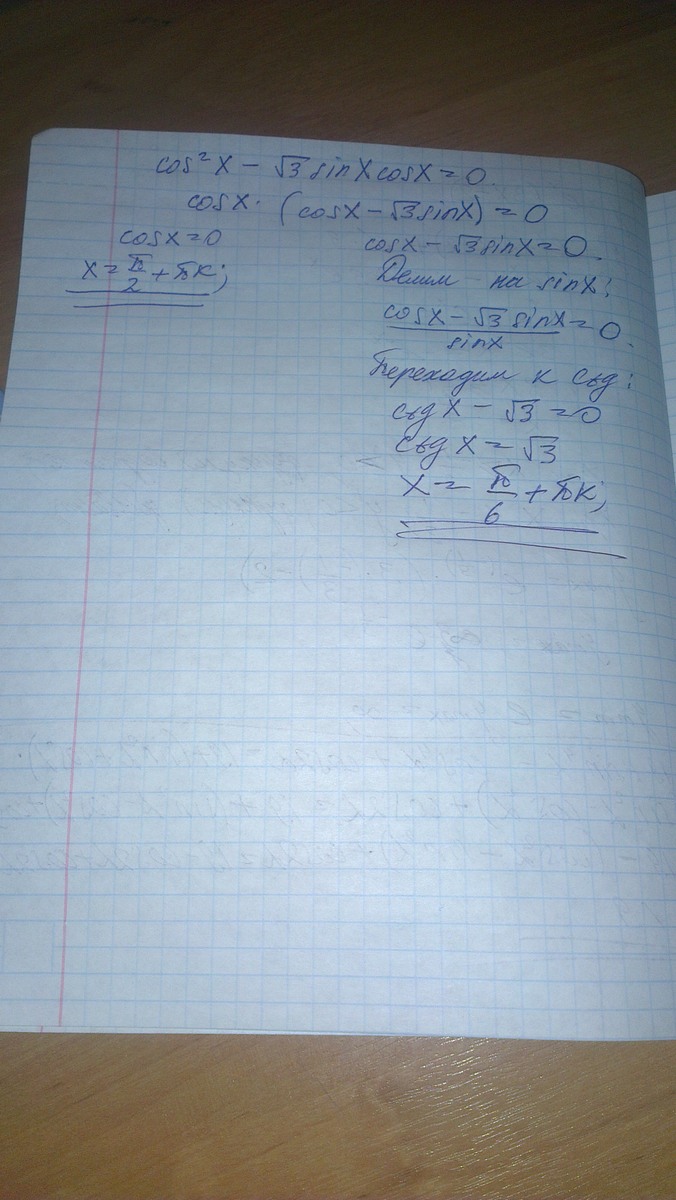 cos²x - √3 sinx cosx = 0.
cosx · (cosx - √3 sinx) = 0
cosx = 0
x = π/2 + πk;
cosx - √3 sinx = 0.
Делим на sinx:
(cosx - √3 sinx)/sinx = 0.
Переходим к ctg:
ctg x - √3 = 0
ctg x = √3
x = π/6 + πk;